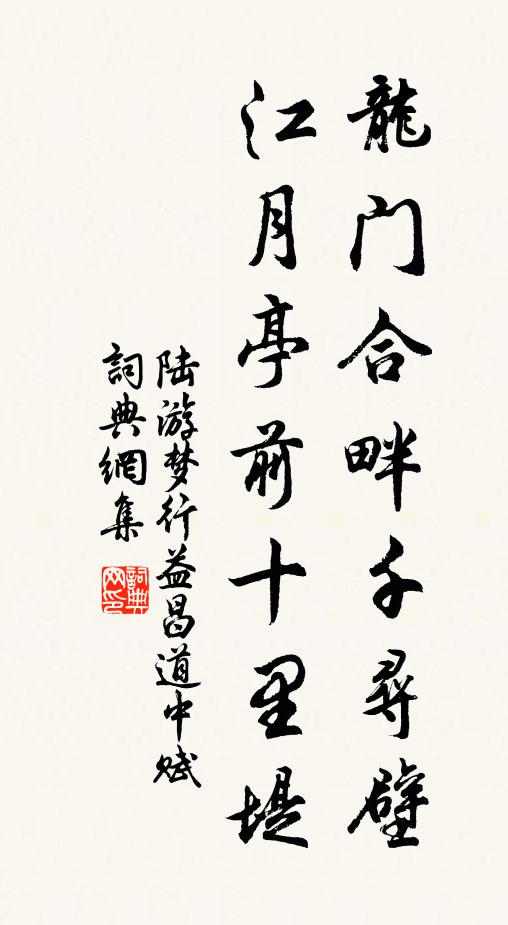 龍门合畔千尋壁
江月亭前十里堤
陆游梦行益昌道中赋
詞典網集
詞典网印